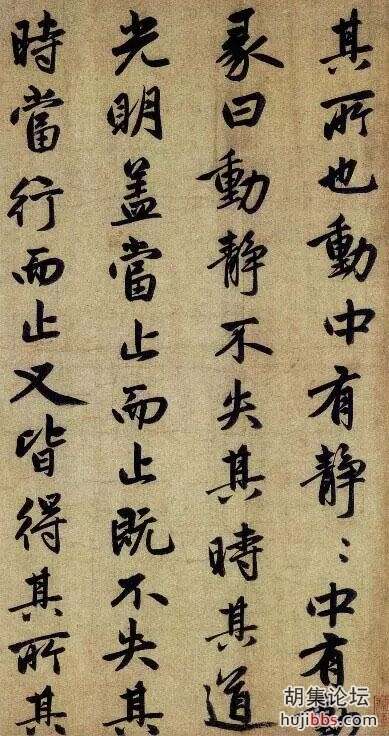 其所也動中有静〻中有動
彖曰動静不失其時其道
光明蓋當止而止既不失其
時當行而止又皆得其所其
胡集论坛
hujibbs.com